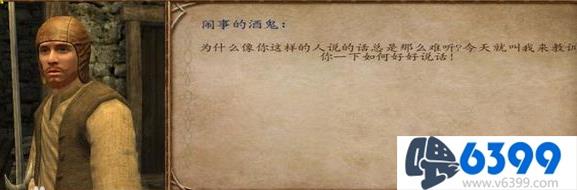 闹事的酒鬼:
为什么像你这样的人说的话总是那么难听?今天就叫我来教训
你一下如何好好说话!
6399
www.v6399.com